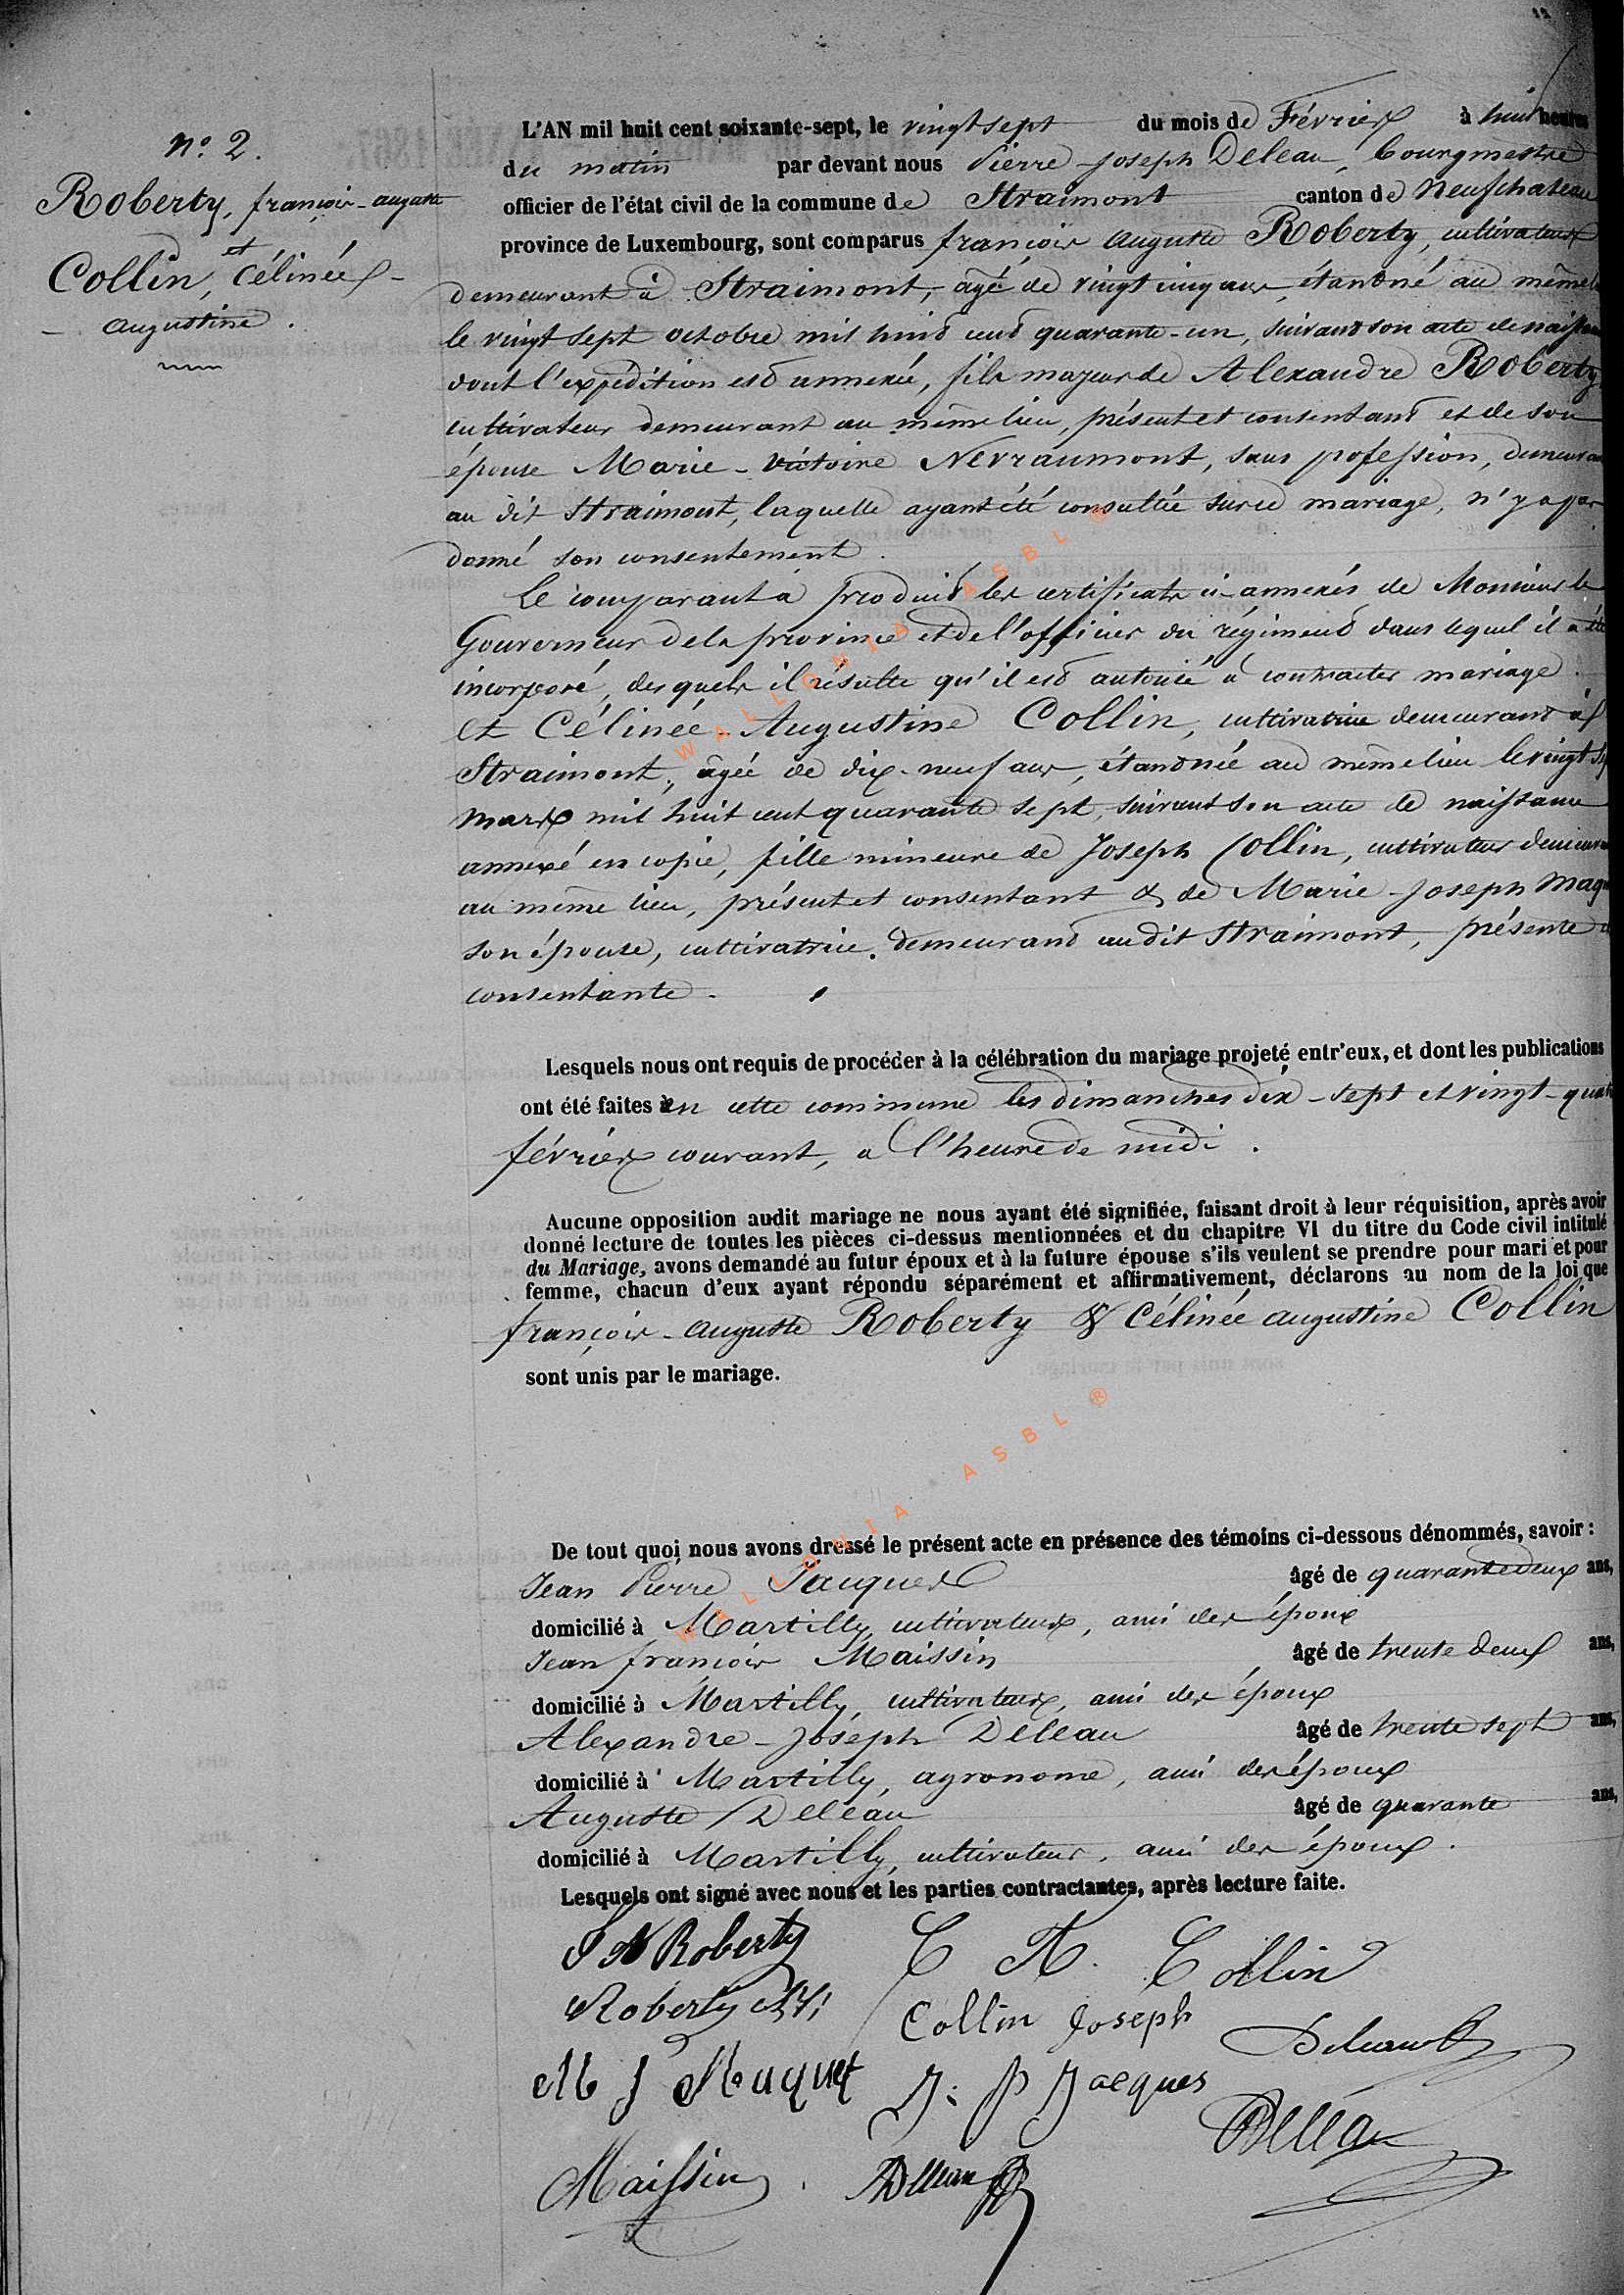 nº 2.
Roberty, françois-auguste
et
Collin, Célinée
Augustine.
L'AN mil huit cent soixante-sept, le vingt sept du mois de Février à huit heures
du matin par devant nous Pierre-Joseph Deleau, bourgmestre
officier de l'état civil de la commune de Straimont canton de Neufchateau
province de Luxembourg, sont comparus françois auguste Roberty, cultivateur
demeurant à Straimont, âgé de vingt cinq ans, étant né au même
le vingt sept octobre mil huit cent quarante-un, suivant son acte de naissance
dont l'expédition est annexée, fils majeur de Alexandre Roberty
cultivateur demeurant au même lieu, présent et consentant et de son
épouse Marie-Victoire Nevraumont, sans profession, demeurant
au dit Straimont, laquelle ayant été consultée sur ce mariage, n'y a pas
donné son consentement.
Le comparant a produit les certificats ci-annexés de Monsieur le
Gouverneur de la province et de l'officier du régiment dans lequel il a été
incorporé, desquels il résulte qu'il est autorisé à contracter mariage.
et Célinée Augustine Collin, cultivatrice demeurant à
Straimont, âgée de dix-neuf ans, étant née au même lieu le vingt
mars mil huit cent quarante sept, suivant son acte de naissance
annexé en copie, fille mineure de Joseph Collin, cultivateur demeurant
au même lieu, présent et consentant & de Marie-Joseph Maq
son épouse, cultivatrice, demeurant au dit Straimont, présente
consentante.
Lesquels nous ont requis de procéder à la célébration du mariage projeté entr'eux, et dont les publications
ont été faites en cette commune les dimanches dix-sept et vingt-quatre
février courant, a l'heure de midi.
Aucune opposition audit mariage ne nous ayant été signifiée, faisant droit à leur réquisition, après avoir
donné lecture de toutes les pièces ci-dessus mentionnées et du chapitre VI du titre du Code civil intitulé
du Mariage, avons demandé au futur époux et à la future épouse s'ils veulent se prendre pour mari et pour
femme, chacun d'eux ayant répondu séparément et affirmativement, déclarons au nom de la loi que
françois-auguste Roberty & Célinée augustine Collin
sont unis par le mariage.
De tout quoi nous avons dressé le présent acte en présence des témoins ci-dessous dénommés, savoir :
Jean Pierre Jacques âgé de quarante deux ans,
domicilié à Martilly, cultivateur, ami des époux
Jean françois Maissin âgé de trente deux ans,
domicilié à Martilly, cultivateur, ami des époux
Alexandre-Joseph Deleau âgé de trente sept ans,
domicilié à Martilly, agronome, ami des époux
Auguste Deleau âgé de quarante ans,
domicilié à Martilly, cultivateur, ami des époux.
Lesquels ont signé avec nous et les parties contractantes, après lecture faite.
Roberty C A. Collin
Roberty Collin Joseph
M J Maquet J. P Jacques Deleau
Maissin
WALLONIA ASBL ®
WALLONIA ASBL ®